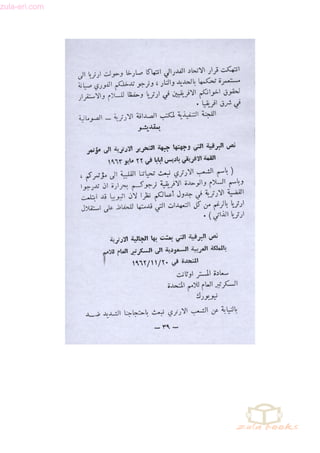 zula-eri.com
انتهكت قرار الاتحاد الفدرالي انتهاكا صارخا وحولت ارتريا الى
مستعمرة تحكمها بالحديد والنار ، ونرجو تدخلكم الفوري صيانة
لحقوق اخوانكم الافريقيين في ارتريا وحفظا للسلام والاستقرار
في شرق افريقيا .
اللجنة التنفيذية لمكتب الصداقة الارترية ــ الصومالية
بمقديشو
نص البرقية التي وجهتها جبهة التحرير الارترية الى مؤتمر
القمة الافريقي باديس ابابا في ٢٢ مايو ١٩٦٣
( باسم الشعب الارتري نبعث تحياتنا القلبية الى مؤتمركم ،
وباسم السلام والوحدة الافريقية نرجوكم بحرارة ان تدرجوا
القضية الارترية في جدول أعمالكم نظرا لأن اثيوبيا قد ابتلعت
ارتريا بالرغم من كل التعهدات التي قدمتها للحفاظ على استقلال
ارتريا الذاتي ) .
نص البرقية التي بعثت بها الجالية الارترية
بالمملكة العربية السعودية الى السكرتير العام للامم
المتحدة في ١٩٦٢/١١/٢٠
سعادة المستر اوثانت
السكرتير العام للامم المتحدة
نيويورك
بالنيابة عن الشعب الارتري نبعث باحتجاجنا الشديد ضــد
— ٣٩ —
zula books